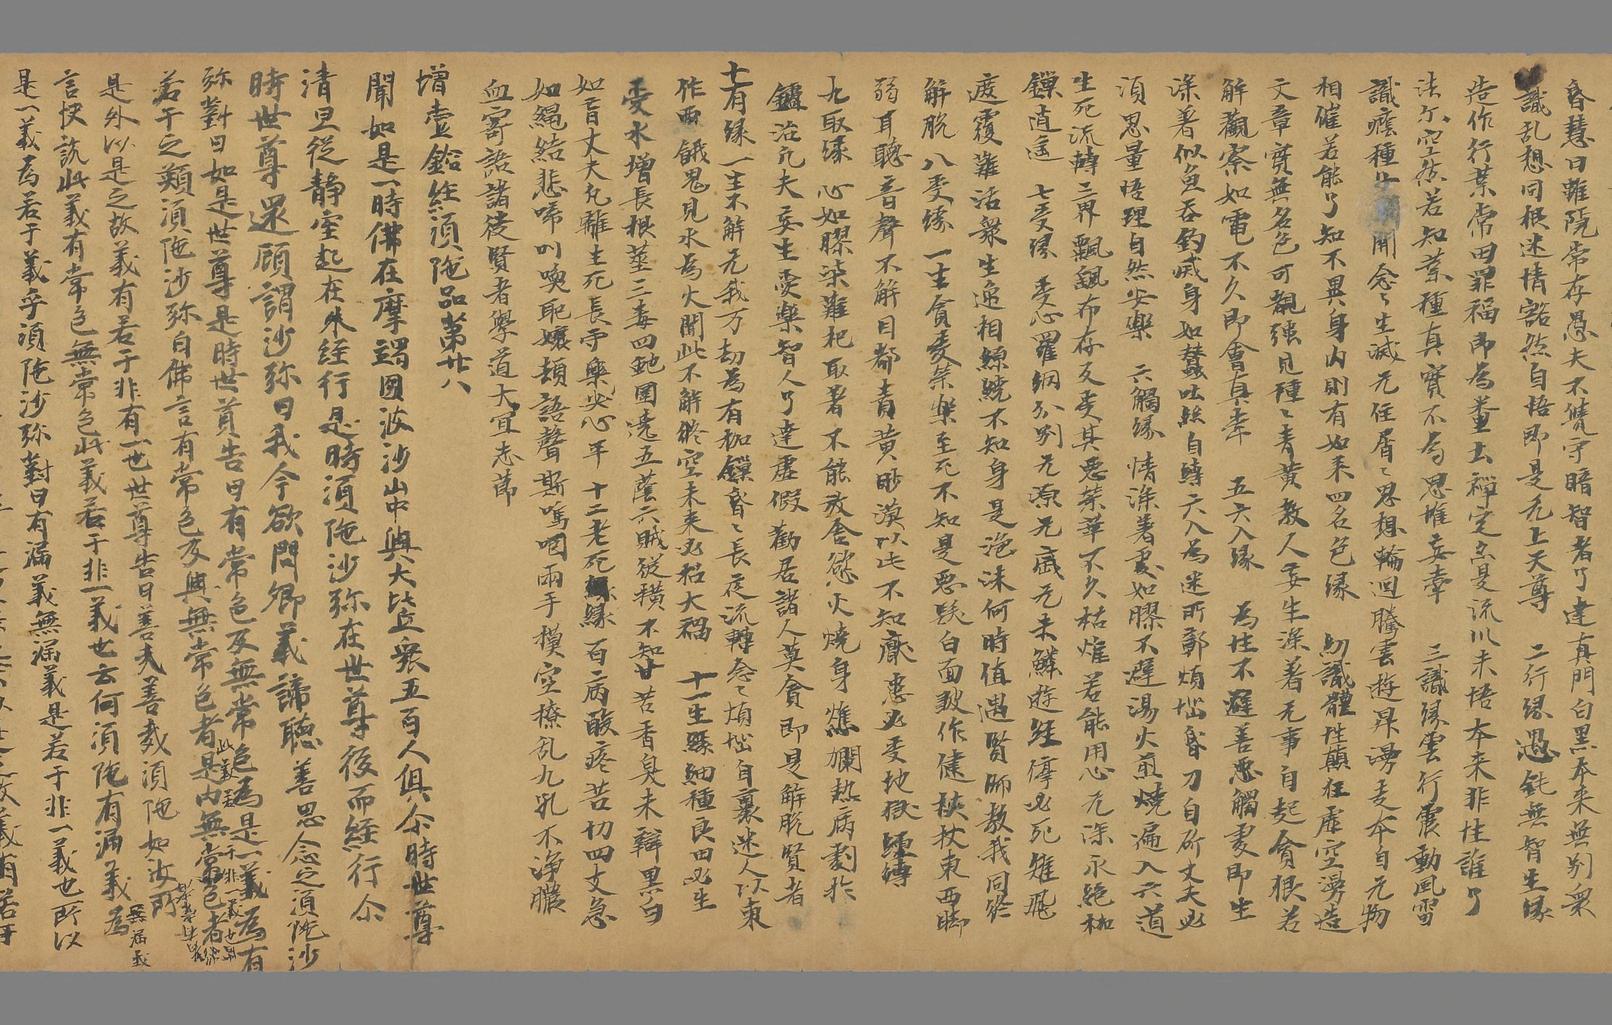 昏慧日雖院常存愚夫不覺守暗智者了達真門白黑本来無別眾
識乱想同根迷情豁然自悟即是无上天尊　二行縁愚鈍無智生縁
造作行業常田罪福即為重去禅定亦是流川未悟本来非性誰了
法尒空然若知業種真實不為思惟妄牽　三識縁雲行震動風雷
識癡種生開念〻生滅无住眉〻思想輪迴騰雲遊昇湧走本自无物
相催若能了知不異身内則有如来四名色縁　幼識體性顛狂虚空湧造
文章實無名色可覩强見種〻青黄教人妄生染著无事自起貪根若
解觀察如電不久即會真牽　五六入縁　為性不避善惡觸處即生
染著似魚吞鈎滅身如蠶吐絲自縛六入為迷所鄣煩惱昏刀自斫丈夫必
須思量悟理自然安樂　六觸縁　情染著處如膠不避湯火煎燒遍入六道
生死流轉三界飄颻布存及受其惡業華不久枯燋若能用心无染永絶枷
鏁逍遥　七受縁　受心羅網分別无源无底无未鱗遊經停必死雉飛
度覆難活衆生遞相繚繞不知身是泡沫何時值遇賢師教我同登
解脱　八受縁　一生貪愛榮樂至死不知是惡髮白面皺作健柱杖東西脚
弱耳聰音聲不解目都青黄眇漠以此不知厭患必受地獄經縛
九取縁　心如膠柒難把取著不能放舍慾火燒身燋爛熱病劇非
鑪冶凡夫妄生愛樂智人了達虚假勸居諸人莫貪即是解脱賢者
十有縁一生不解无我万劫為有枷鏁昏〻長夜流轉念〻煩惱自裹迷人以東
作西餓鬼見水為火聞此不解終空未来必招大禍　十一生縁細種良田必生
愛水增長根莖三毒四虵圍遶五蔭六賊從横不知甘苦香臭未辯黑白
如盲丈夫免離生死長守樂安心牢　十二老死縁　百病酸疼苦切四丈急
如䋲結悲啼叫喚聀孃頬語聲嘶噎咽兩手摸空撩乱九孔不淨膿
血寄語諸徒賢者學道大宜志苐
增壹鋡經須陁品第廿八
聞如是一時佛在摩竭國波沙山中與大比丘衆五百人俱尒時世尊
清旦從静室起在外經行是時須陁沙弥在世尊後而經行尒
時世尊還顧謂沙弥曰我今欲問卿義諦聽善思念之須陁沙
弥對曰如是世尊是時世尊告曰有常色及無常色為是一義為有
若干之類須陁沙弥白佛言有常色及與無常色者是内無常色者
是外以是之故義有若干非有一也世尊告曰善夫善哉須陁如汝所
言快說此義有常色無常色此義若干非一義也云何須陁有漏義為
是一義為若干義乎須陁沙弥對曰有漏義無漏義是若干非一義也所以